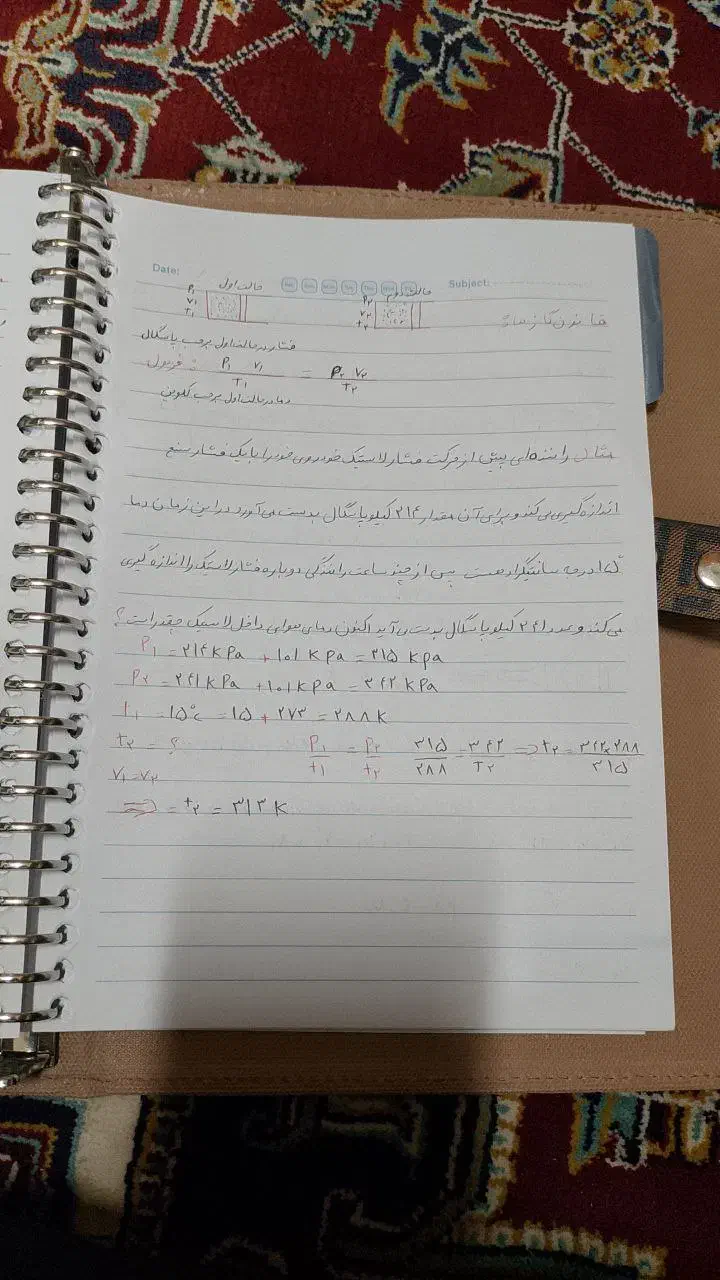 Date:
Subject:
حالت اول
حالت دوم
P₁
V₁
T₁
P₂
V₂
T₂
قانون گازها:
فشار در حالت اول برحسب پاسگال
فرمول: P₁ V₁ / T₁ = P₂ V₂ / T₂
دما در حالت اول برحسب کلوین
مثال راننده‌ای پیش از حرکت فشار لاستیک خودروی خود را با یک فشار سنج
اندازه گیری می‌کند و برای آن مقدار ۲۱۴ کیلو پاسگال بدست می‌آورد در این زمان دما
۱۵° درجه سانتیگراد هست پس از چند ساعت رانندگی دوباره فشار لاستیک را اندازه گیری
می‌کند و عدد ۲۴۱ کیلو پاسگال بدست می‌آید اکنون دمای هوای داخل لاستیک چقدر است؟
P₁ = ۲۱۴ kPa + ۱۰۱ kPa = ۳۱۵ kpa
P₂ = ۲۴۱ kPa + ۱۰۱ kPa = ۳۴۲ kPa
T₁ = ۱۵°c = ۱۵ + ۲۷۳ = ۲۸۸ K
t₂ = ? P₁/t₁ = P₂/t₂ ۳۱۵/۲۸۸ = ۳۴۲/T₂ ⇒ t₂ = ۳۴۲×۲۸۸/۳۱۵
V₁ = V₂
⇒ = t₂ = ۳۱۳ K